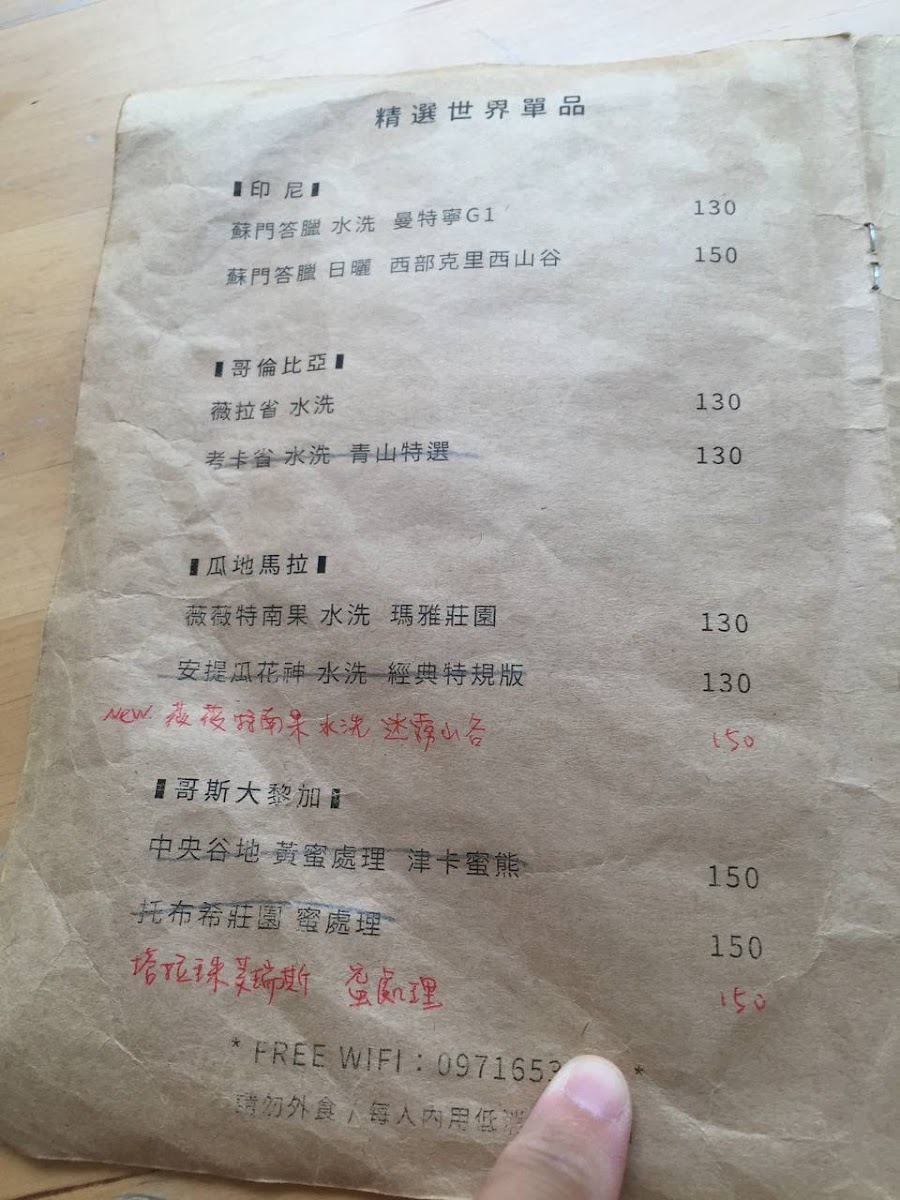 精選世界單品
▮印 尼▮
蘇門答臘 水洗 曼特寧G1 130
蘇門答臘 日曬 西部克里西山谷 150
▮哥倫比亞▮
薇拉省 水洗 130
考卡省 水洗 青山特選 130
▮瓜地馬拉▮
薇薇特南果 水洗 瑪雅莊園 130
安提瓜花神 水洗 經典特規版 130
NEW 薇薇特南果 水洗 迷霧山谷 150
▮哥斯大黎加▮
中央谷地 黃蜜處理 津卡蜜熊 150
托布希莊園 蜜處理 150
塔拉珠 美瑞斯 蜜處理 150
* FREE WIFI：0971653 *
請勿外食 / 每人內用低消